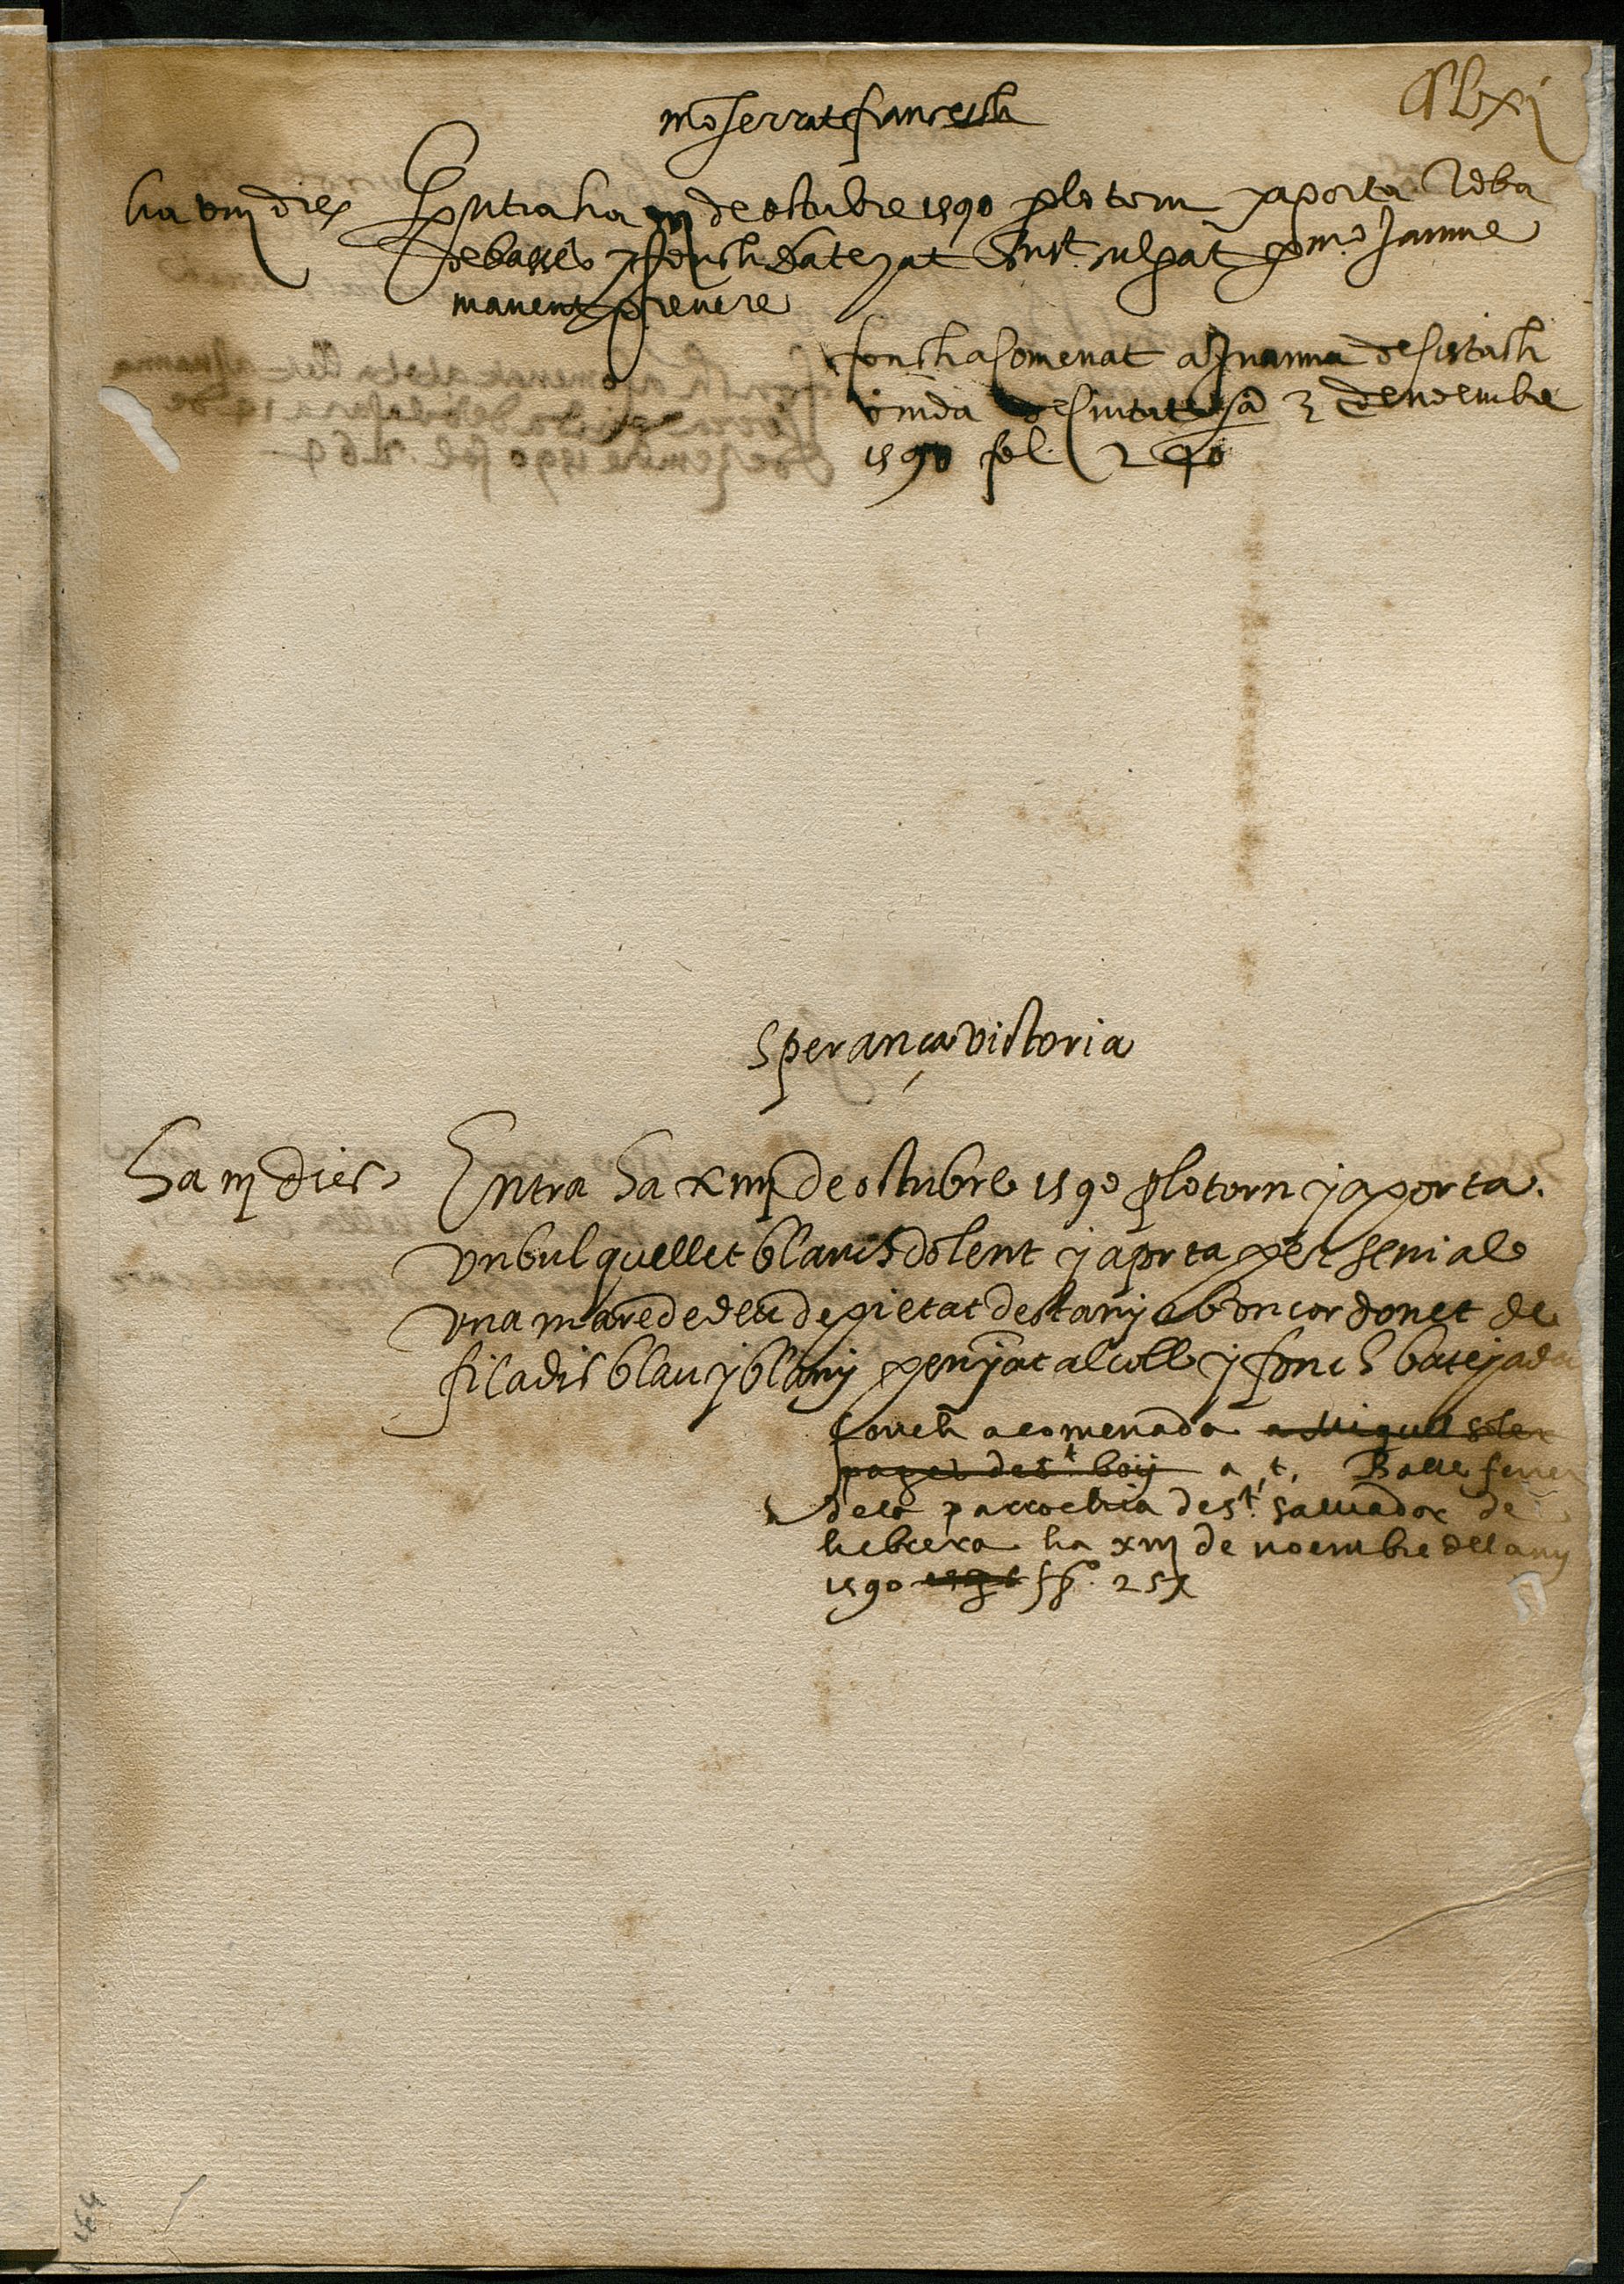 Clxxj
moserrat francesch
ha viij dies Entra ha xiij de octubre 1590 p lo torn y aporta Roba
de bolquès y fonch batejat Inst. sulpat p mº Jaume
manent prevere
fonch a Comenat a Juanna
viuda de Ciutat 3 de noembre
1590 fol. 240
Sperança victoria
ha iij dies Entra ha xiiij de octubre 1590 p lo torn y aporta
un bulquellet blanch dolent y aporta per senial
una mare de deu de pietat de stany ab on cordonet de
filadis blau y blanj penjat al coll y fonch batejada
fonch acomenada a Miquel soler
pages de st. boy a t. Balle ferrer
dela parrochia de st. salvador de
hebrera ha xiij de noembre dell any
1590 fº. 257